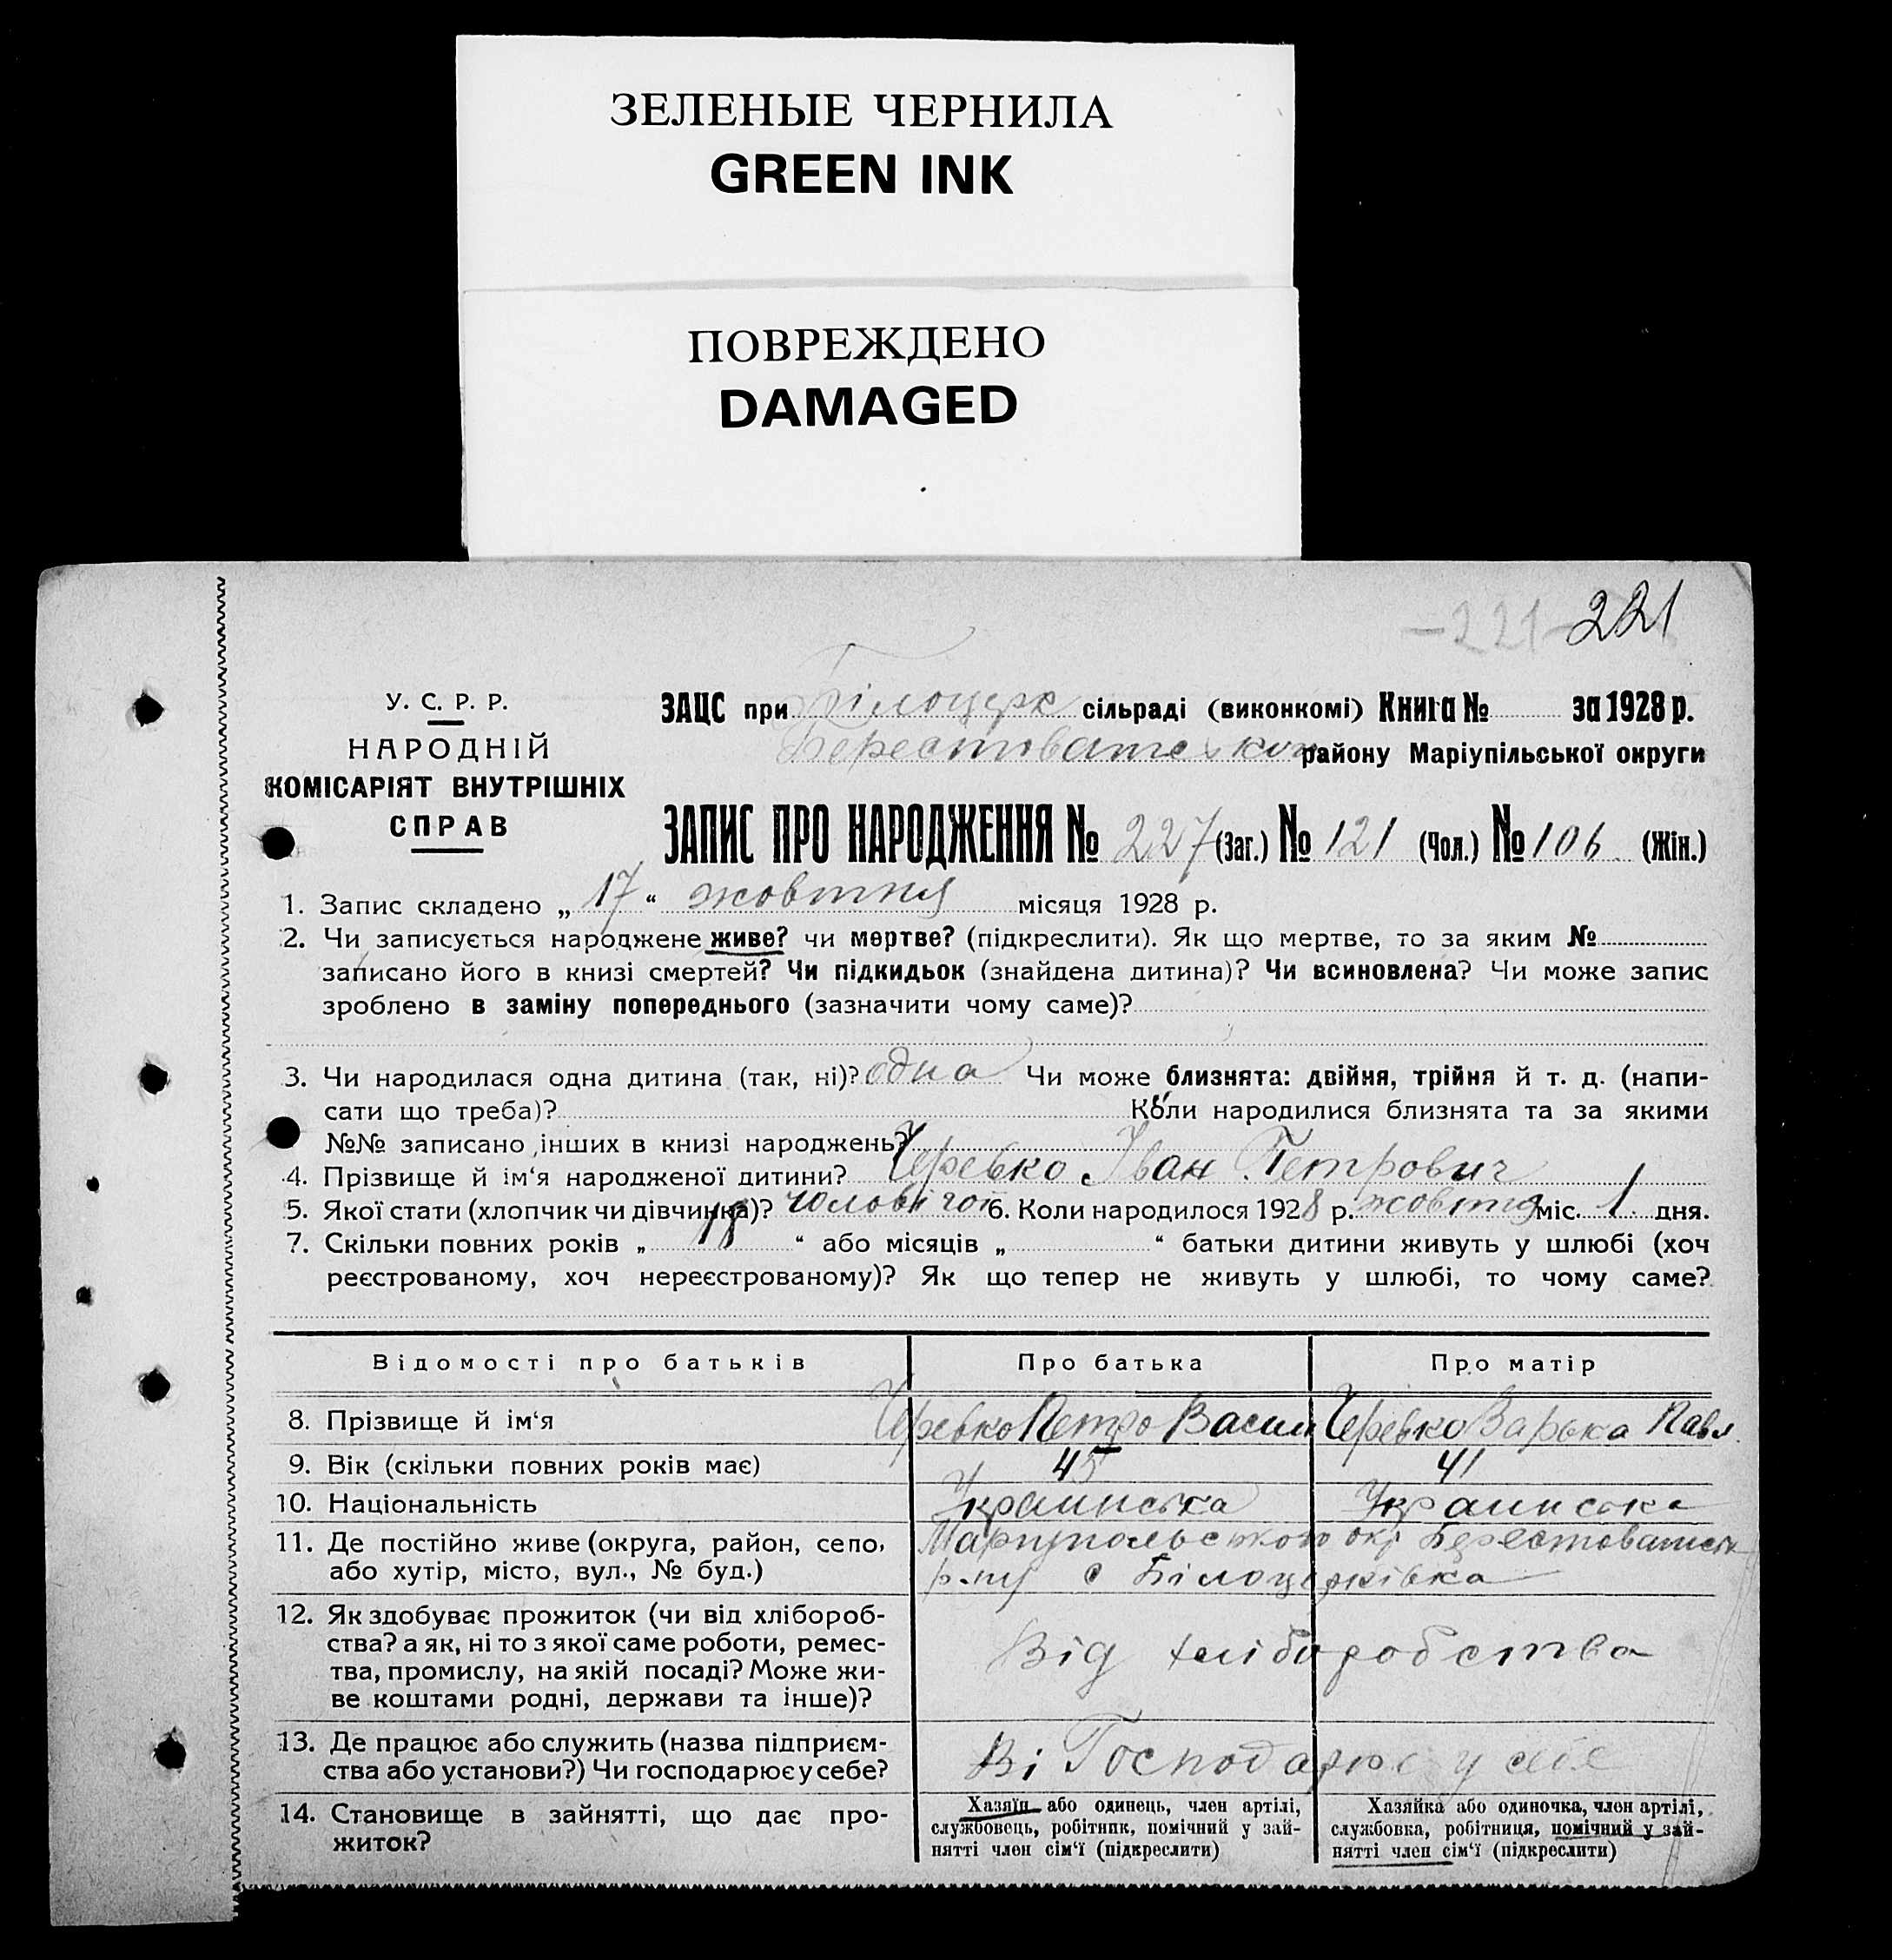 ЗЕЛЕНЫЕ ЧЕРНИЛА
GREEN INK
ПОВРЕЖДЕНО
DAMAGED
-221- 221
У. С. Р. Р.
НАРОДНІЙ
КОМІСАРІЯТ ВНУТРІШНІХ
СПРАВ
ЗАЦС при Білоцерк сільраді (виконкомі) Книга № за 1928 р.
Берестоватськом району Маріупільської округи
ЗАПИС ПРО НАРОДЖЕННЯ № 227 (Заг.) № 121 (Чол.) № 106 (Жін.)
1. Запис складено „ 17 “ жовтня місяця 1928 р.
2. Чи записується народжене живе? чи мертве? (підкреслити). Як що мертве, то за яким №
записано його в книзі смертей? Чи підкидьок (знайдена дитина)? Чи всиновлена? Чи може запис
зроблено в заміну попереднього (зазначити чому саме)?
3. Чи народилася одна дитина (так, ні)? одна Чи може близнята: двійня, трійня й т. д. (напи-
сати що треба)? Коли народилися близнята та за якими
№№ записано інших в книзі народжень?
4. Прізвище й ім‘я народженої дитини? Черевко Іван Петрович
5. Якої стати (хлопчик чи дівчинка)? чоловічої 6. Коли народилося 1928 р. жовтня міс. 1 дня.
7. Скільки повних років „ 18 “ або місяців „ “ батьки дитини живуть у шлюбі (хоч
реєстрованому, хоч нереєстрованому)? Як що тепер не живуть у шлюбі, то чому саме?
Відомості про батьків Про батька Про матір
8. Прізвище й ім‘я Черевко Петро Васил Черевко Варька Павл
9. Вік (скільки повних років має) 45 41
10. Національність Украинська Украинська
11. Де постійно живе (округа, район, село, Маріупольською окр Берестоватськ
або хутір, місто, вул., № буд.) р-ну с Білоцерківка
12. Як здобуває прожиток (чи від хлібороб-
ства? а як, ні то з якої саме роботи, ремес-
тва, промислу, на якій посаді? Може жи-
ве коштами родні, держави та інше)?
Від хліборобства
13. Де працює або служить (назва підприєм-
ства або установи?) Чи господарює у себе?
Ві Господарює у себе
14. Становище в зайнятті, що дає про-
житок?
Хазяїн або одинець, член артілі,
службовець, робітник, помічний у зай-
нятті член сім‘ї (підкреслити)
Хазяйка або одиночка, член артілі,
службовка, робітниця, помічний у зай-
нятті член сім‘ї (підкреслити)